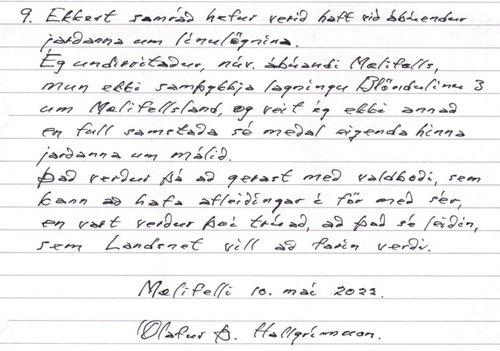 9. Ekkert samráð hefur verið haft við ábúendur
jarðanna um línulögnina.
Ég undirritaður, núv. ábúandi Mælifells,
mun ekki samþykkja lagningu Blöndulínu 3
um Mælifellsland, og veit ég ekki annað
en full samstaða sé meðal eigenda hinna
jarðanna um málið.
Það verður þá að gerast með valdboði, sem
kann að hafa afleiðingar í för með sér,
en vart verður því trúað, að það sé leiðin,
sem Landsnet vill að farin verði.
Mælifelli 10. maí 2022.
Ólafur Þ. Hallgrímsson.